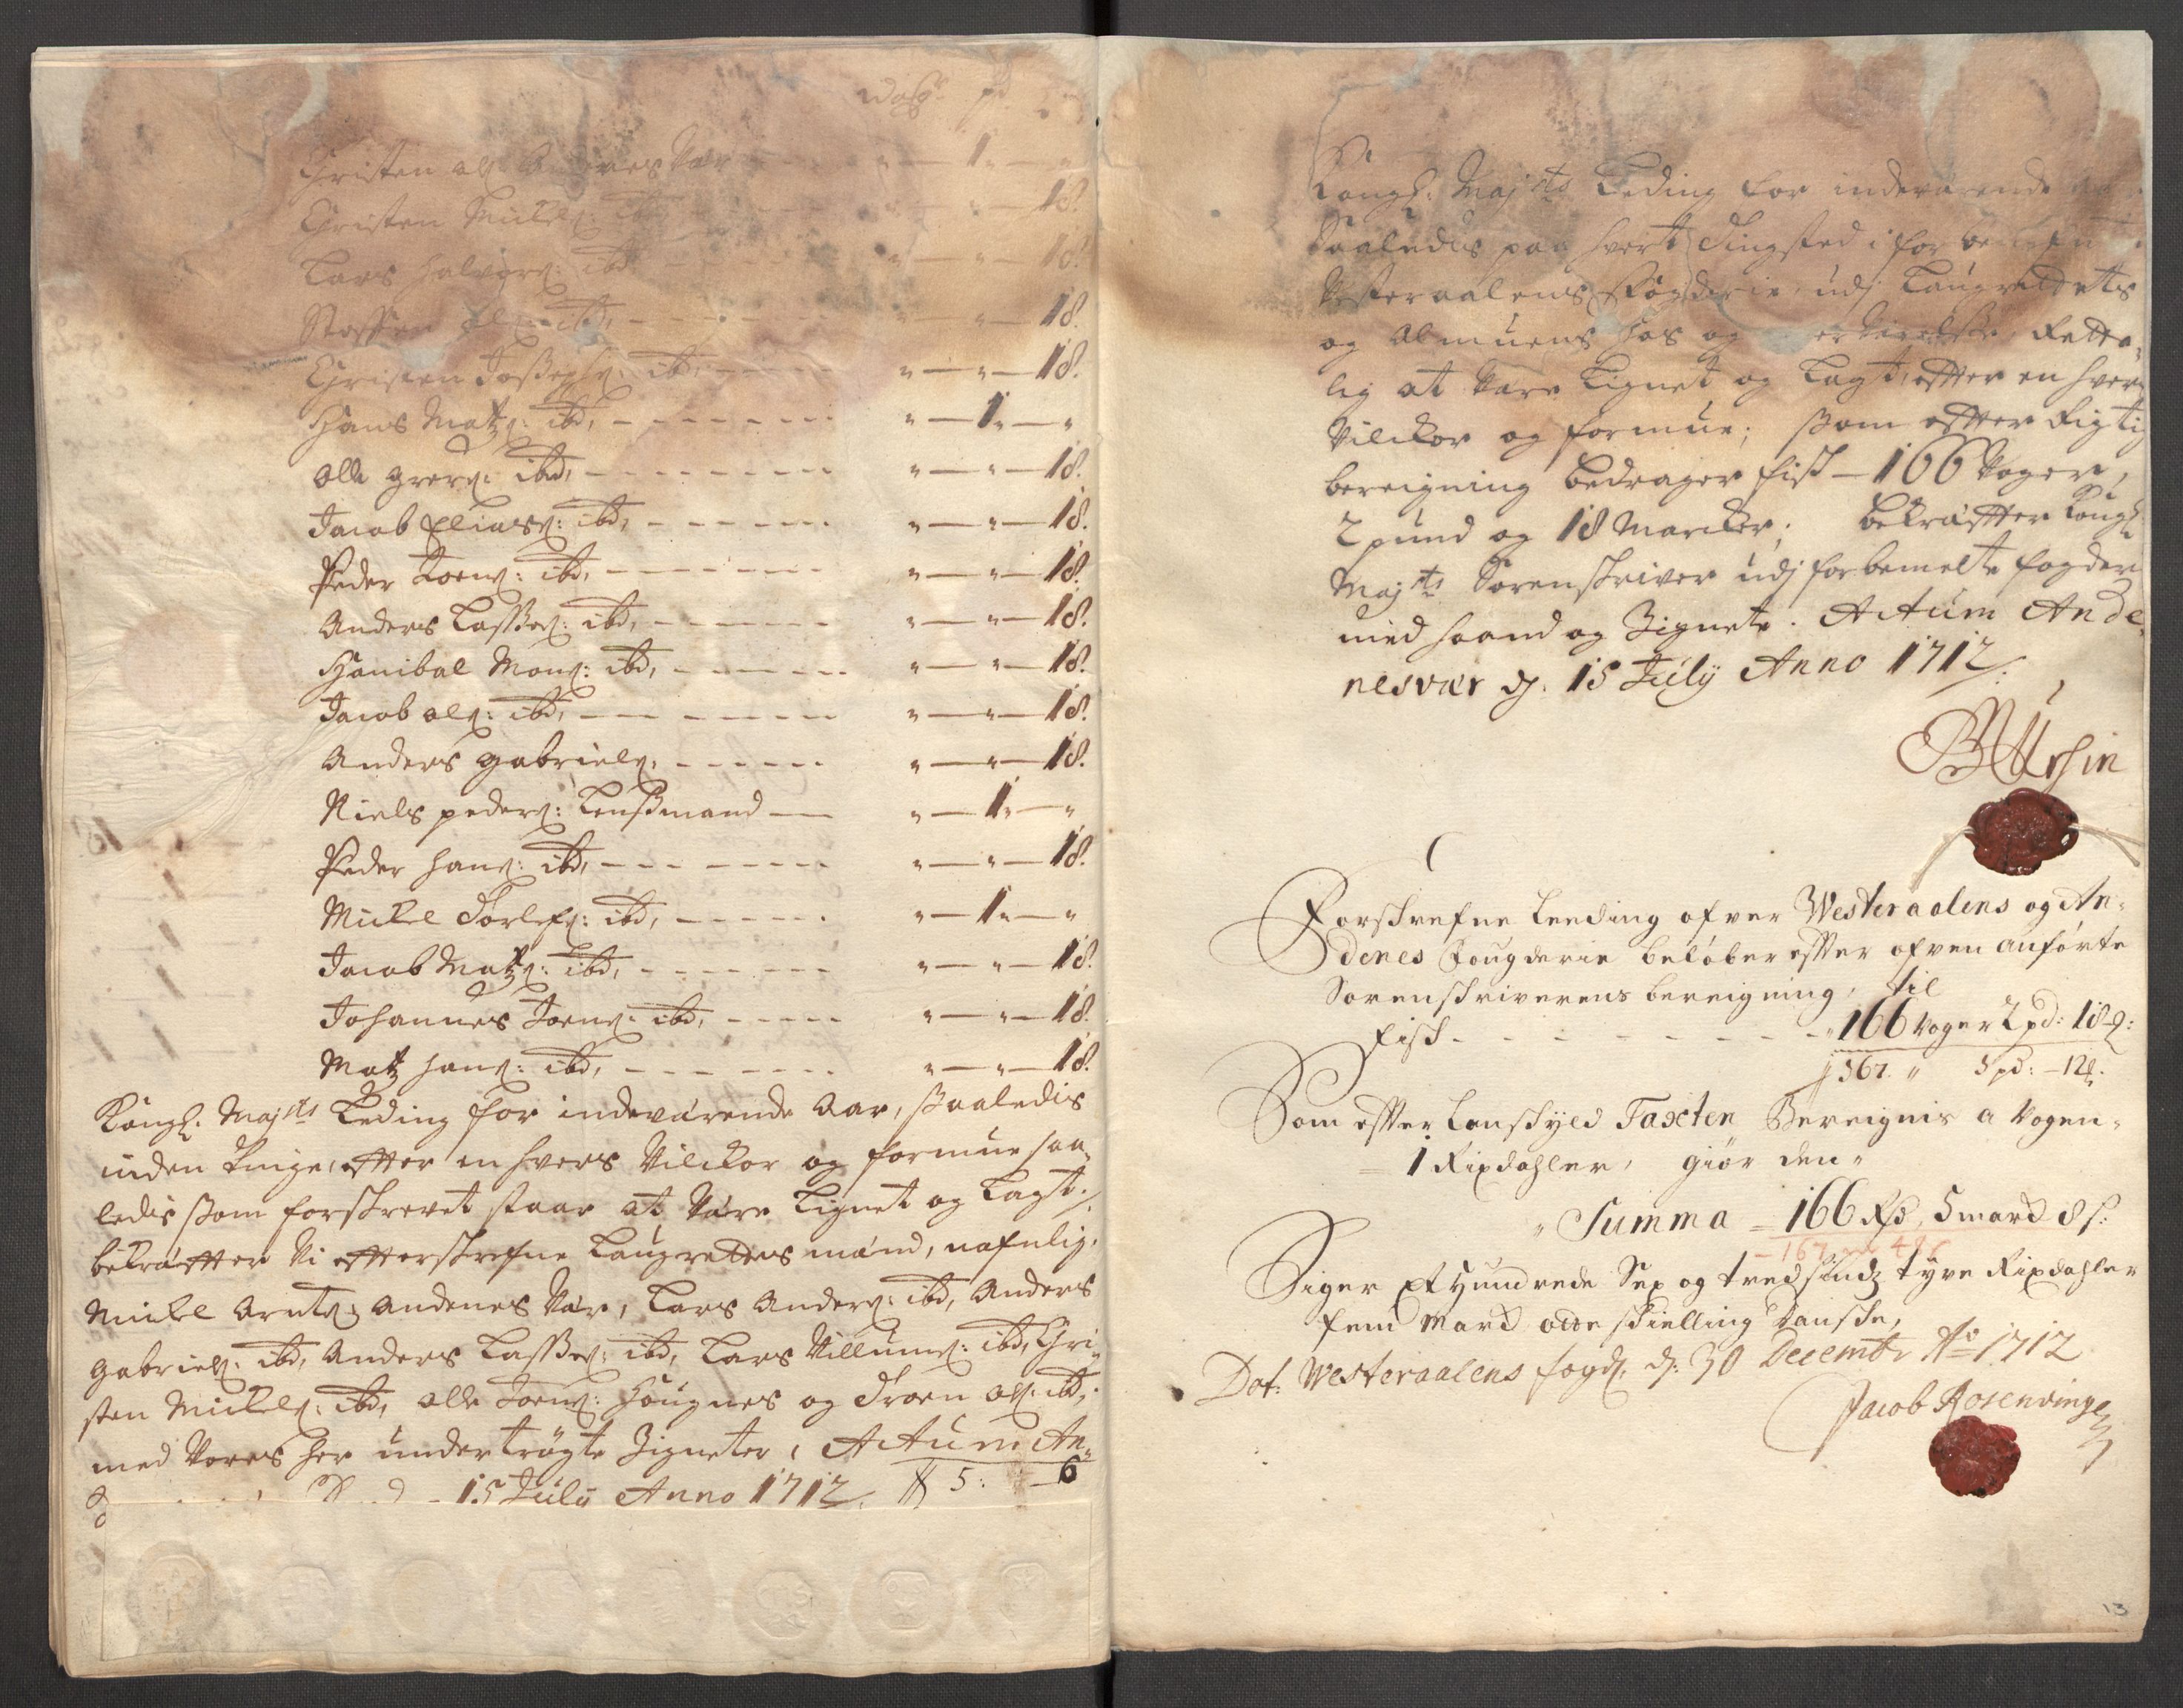 Wog: pd
Christen Ols: Andenes Vær " — 1 — "
Christen Mickels: ibd " — " — 18.
Lars Halvors: ibd " — " — 18.
Staffen Ols: ibd, " — " — 18.
Christen Joßephs: ibd, " — " — 18.
Hans Matzs: ibd, " — 1 — "
Olle Grers: ibd, " — " — 18.
Jacob Eliass: ibd, " — " — 18.
Peder Joens: ibd, " — " — 18.
Anders Laßes: ibd, " — " — 18.
Hanibal Mons: ibd, " — " — 18.
Jacob Ols: ibd, " — " — 18.
Anders Gabriels, " — " — 18.
Niels Peders: Lenßmand " — 1 — "
Peder Hans: ibd, " — " — 18.
Mickel Torlefs: ibd, " — 1 — "
Jacob Matzs: ibd, " — " — 18.
Johannes Joens: ibd, " — " — 18.
Matz Hans: ibd, " — " — 18.
Kongl: Majsts Leding for indeværende Aar, ßaaledis
inden Tinge, efter en hvers Vilckor og formue saa-
ledis ßom forskrevet staar at være Lignet og Lagt,
bekræfter Vi efterskrefne Laugrettes mænd, nafnlig.
Mickel Arents: Andenes Vær, Lars Anders: ibd, Anders
Gabriels: ibd, Anders Laßes: ibd, Lars Villums: ibd, Chri-
sten Mickels: ibd, Olle Joens: Haugnes og Troen Ols: ibd,
med Vores her undertrögte Zigneter, Actum An-
15 July Anno 1712. 5: 6
Kongl: Majsts Leding for indeværende
Saaledis paa hvert Tingsted i forbe
Vesteraalens Fogderie, udj Laugrettets
og Almuens hos og Rette-
lig at være Lignet og Lagt, efter en hvers
Vilckor og formue; ßom efter Rigtig
bereigning bedrager fisk — 166 Voger,
2 pund og 18 Marcker; bekræfter Kongl:
Majsts Sorenskriver udj forbemelte fogderi
med haand og Zignete. Actum Ande-
nesvær d: 15 July Anno 1712.
B Ursin
Forskrefne Leeding ofver Westeraalens og An-
denes Fougderie beløber efter ofven anførte
Sorenskriverens bereigning, til
Fisk - - - - - - - - 166 Voger 2 pd: 18 ℔:
167 " pd: — 12
Som efter Lanskyld Taxten Bereignis a Vogen
1 Rixdahler, giör den
Summa = 166 Rd, 5 marck 8 s:
- 167
Siger Et Hundrede Sex og tredsindz tyve Rixdahler
fem Marck otte skielling danske,
Dat: Westeraalens fogd: d: 30 Decembr Ao 1712
Jacob Rosenvinge
13